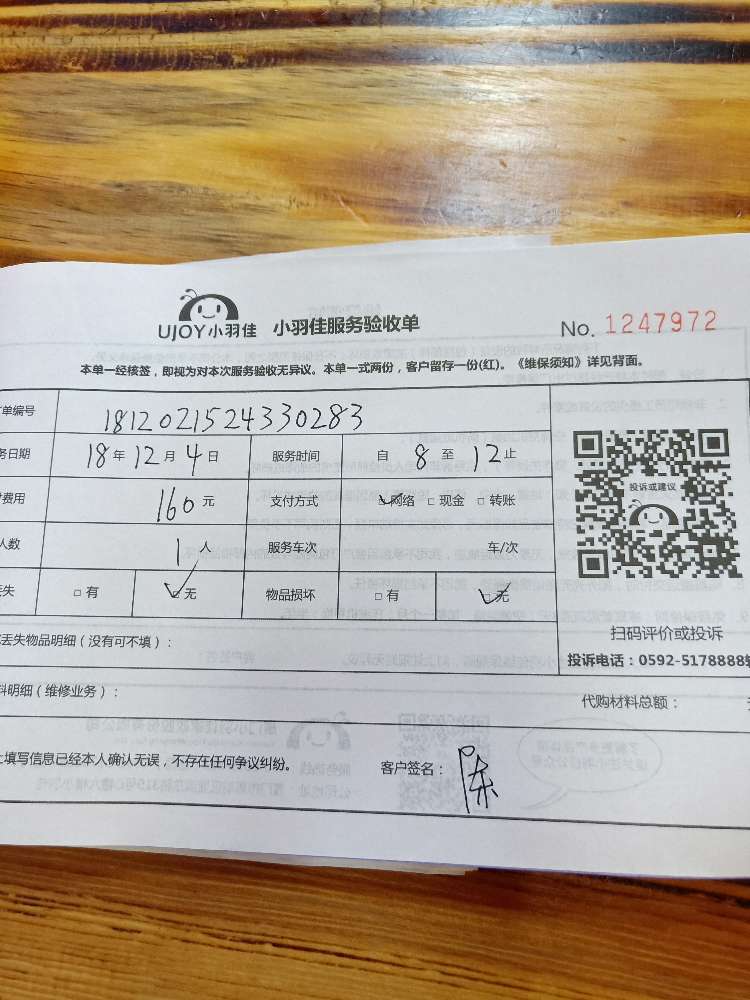 UJOY小羽佳 小羽佳服务验收单 No. 1247972
本单一经核签，即视为对本次服务验收无异议。本单一式两份，客户留存一份(红)。《维保须知》详见背面。
单编号 1812021524330283
务日期 18年12月4日 服务时间 自8至12止
费用 160元 支付方式 ☑网络 □现金 □转账
人数 1人 服务车次 车/次
失 □有 ☑无 物品损坏 □有 ☑无
投诉或建议
扫码评价或投诉
投诉电话：0592-5178888转
丢失物品明细（没有可不填）：
料明细（维修业务）： 代购材料总额：
上填写信息已经本人确认无误，不存在任何争议纠纷。 客户签名：陈